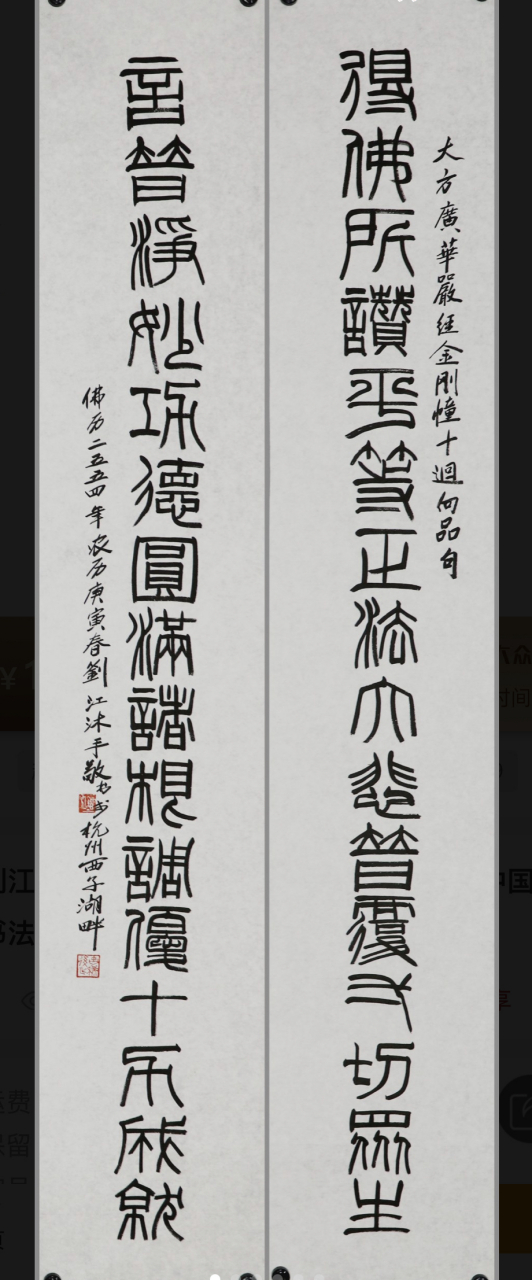 大方廣華嚴經金剛幢十迴向品句
得佛所讚平等正法大悲普覆弌切眾生
音普淨妙功德圓滿諸根調優十力成就
佛历二五五四年农历庚寅春劉江沐手敬书於杭州西子湖畔